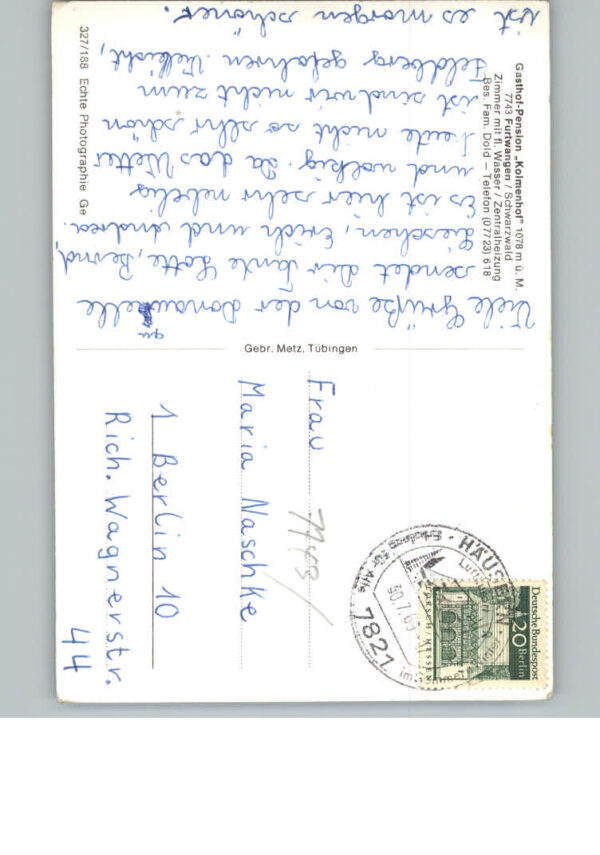 Gasthof-Pension „Kolmenhof" 1078 m ü. M.
7743 Furtwangen / Schwarzwald
Zimmer mit fl. Wasser / Zentralheizung
Bes. Fam. Dold – Telefon (07723) 618
Viele Grüße von der Donauquelle
sendet Dir Tante Lotte, Bernd,
Lieschen, Erich und Andrea.
Es ist hier sehr nebelig
und wolkig. Da das Wetter
heute nicht so sehr schön
ist sind wir nicht zum
Feldberg gefahren. Vielleicht,
ist es morgen schöner.
327/188 Echte Photographie Ge
Gebr. Metz, Tübingen
Deutsche Bundespost
20 Berlin
LORSCH/HESSEN
7821 HÄUSERN
Erholung für Alle
im Sommer
30.7.
Frau
Maria Naschke
1 Berlin 10
Rich. Wagnerstr.
44